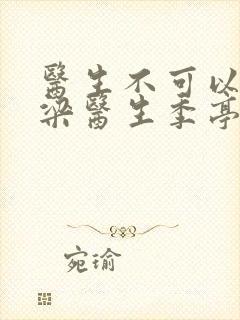 醫生不可以
梁醫生季亭
宛瑜